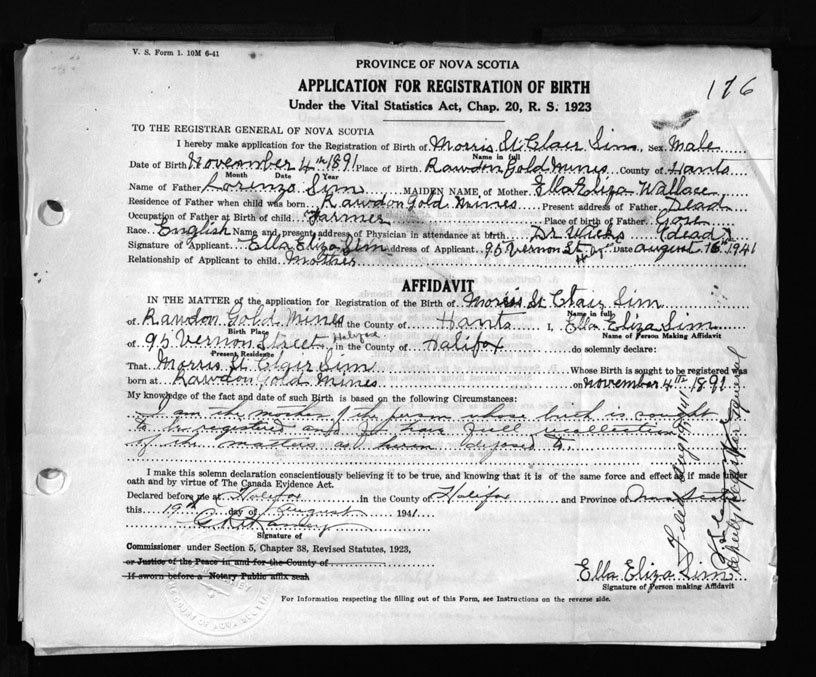 V. S. Form 1. 10M 6-41
PROVINCE OF NOVA SCOTIA
APPLICATION FOR REGISTRATION OF BIRTH
176
Under the Vital Statistics Act, Chap. 20, R. S. 1923
TO THE REGISTRAR GENERAL OF NOVA SCOTIA
I hereby make application for the Registration of Birth of Morris St. Clair Sim, Sex Male
Name in full
Date of Birth November 4th 1891 Place of Birth Rawdon Gold Mines County of Hants
Month Date Year
Name of Father Lorenzo Sim MAIDEN NAME of Mother Ella Eliza Wallace
Residence of Father when child was born Rawdon Gold Mines Present address of Father Dead
Occupation of Father at Birth of child Farmer Place of birth of Father
Race English Name and present address of Physician in attendance at birth Dr Hicks (dead)
Signature of Applicant Ella Eliza Sim Address of Applicant 95 Vernon St. Date August 16th 1941
Relationship of Applicant to child Mother
AFFIDAVIT
IN THE MATTER of the application for Registration of the Birth of Morris St Clair Sim
Name in full
of Rawdon Gold Mines in the County of Hants I, Ella Eliza Sim
Birth Place Name of Person Making Affidavit
of 95 Vernon Street Halifax in the County of Halifax do solemnly declare:
Present Residence
That Morris St. Clair Sim Whose Birth is sought to be registered was
born at Rawdon Gold Mines on November 4th 1891
My knowledge of the fact and date of such Birth is based on the following Circumstances:
I am the mother of the person whose birth is sought
to be registered and I have full recollection
of the matters as herein deposed to.
I make this solemn declaration conscientiously believing it to be true, and knowing that it is of the same force and effect as if made under
oath and by virtue of The Canada Evidence Act.
Declared before me at Halifax in the County of Halifax and Province of
this 19th day of August 1941
Signature of
Commissioner under Section 5, Chapter 38, Revised Statutes, 1923,
or Justice of the Peace in and for the County of
If sworn before a Notary Public affix seal
Ella Eliza Sim
Signature of Person making Affidavit
For Information respecting the filling out of this Form, see Instructions on the reverse side.
Deputy Registrar General